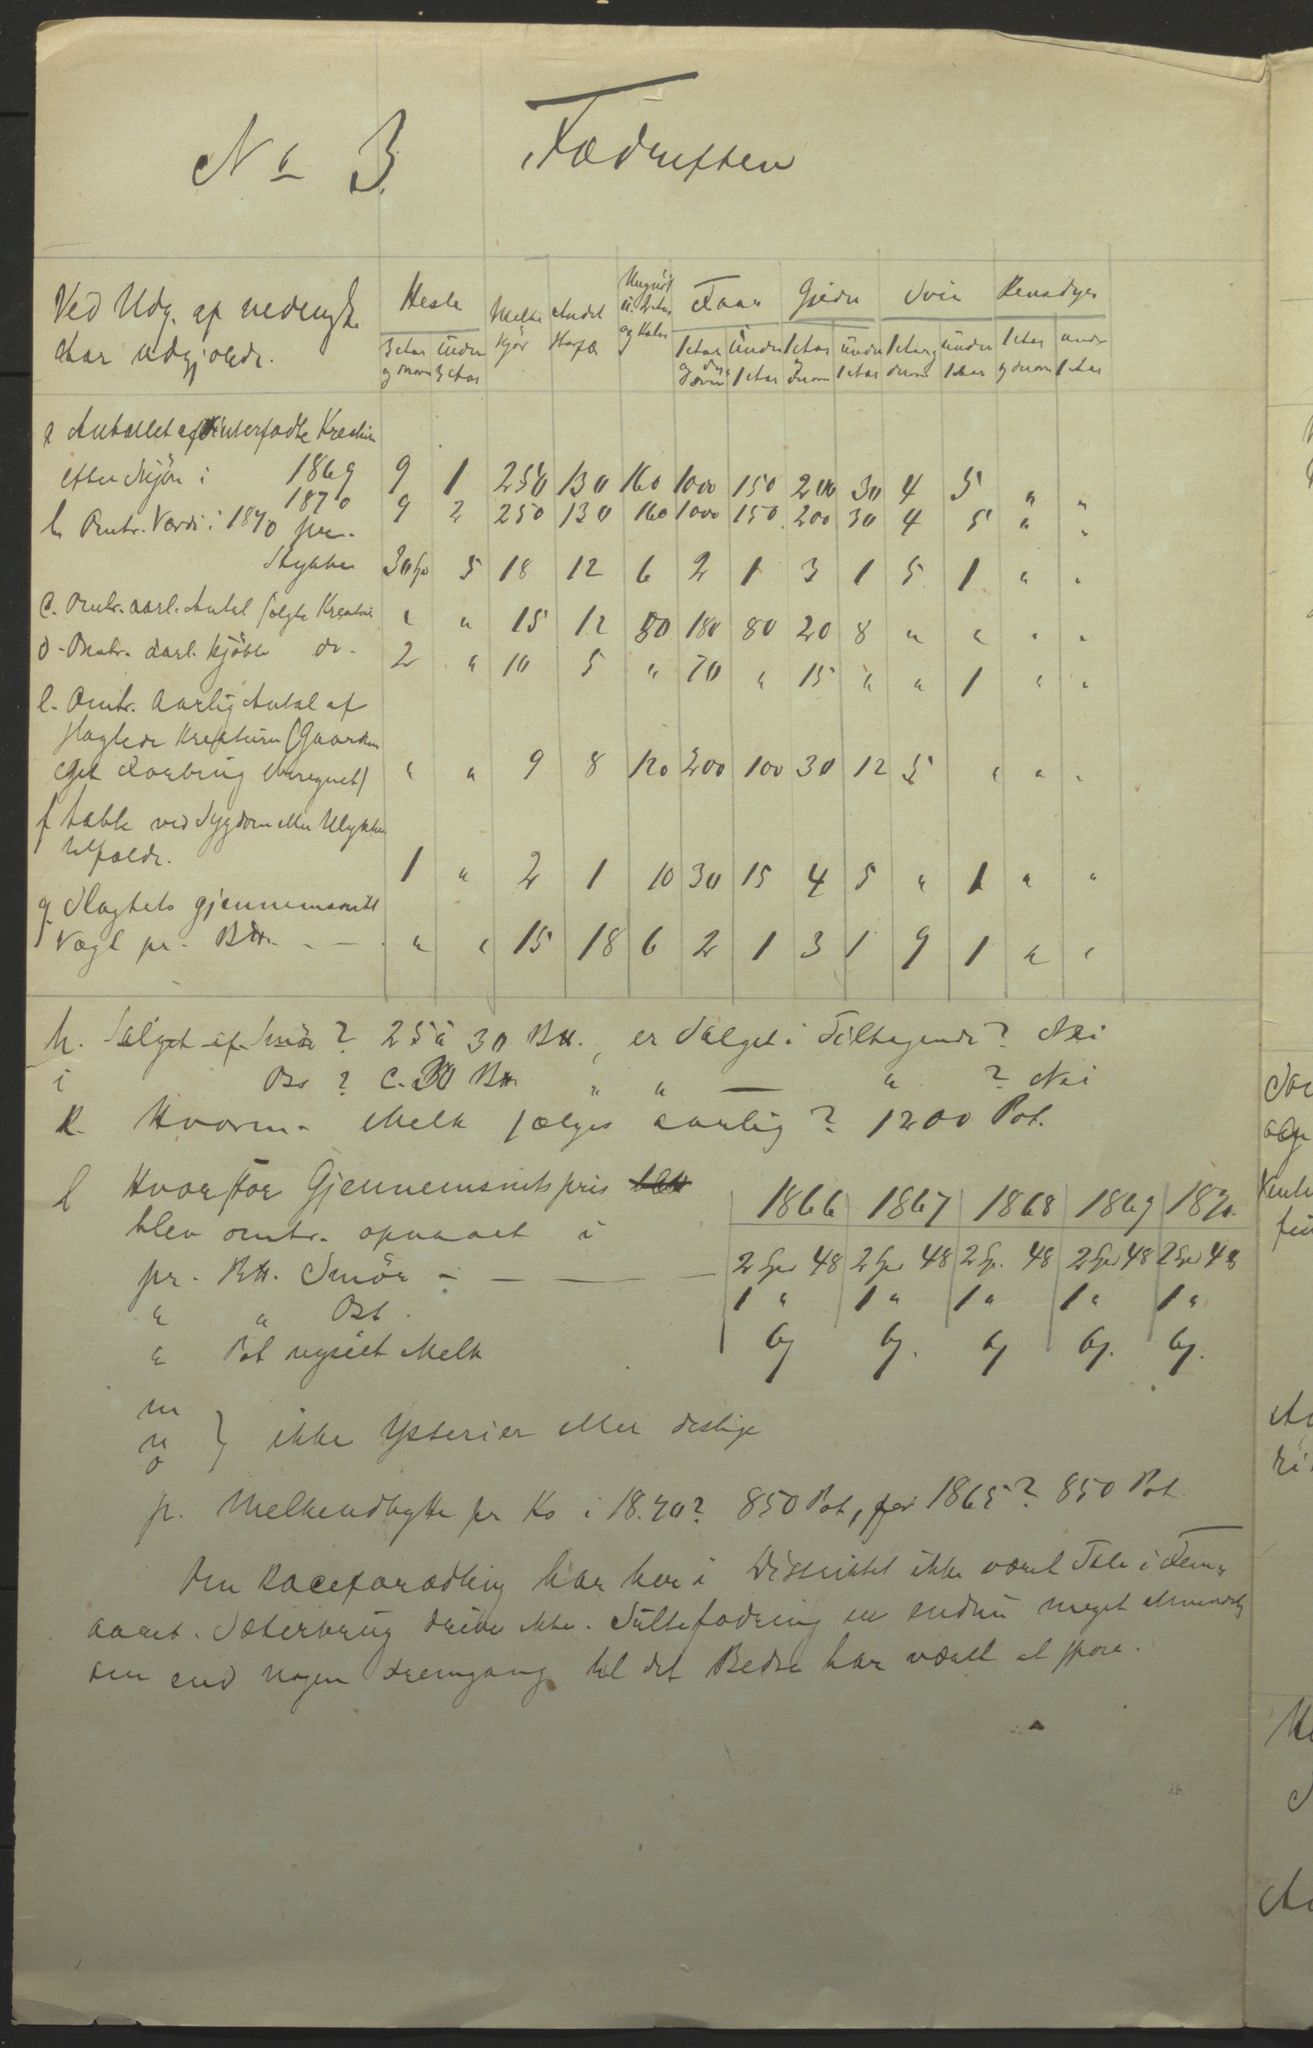 No 3. Fædriften
Ved Udg. af nedenst.
Aar udgjorde.
Heste | Melke Kjør | Andet Storfæ | Ungnöd u. 2 Aar og Kalve | Faar | Gjeder | Svin | Rensdyr
3 Aar og derover | under 3 Aar | 1 Aar og derover | under 1 Aar | 1 Aar og derover | under 1 Aar | 1 Aar og derover | under 1 Aar | 1 Aar og derover | under 1 Aar
a Antallet af Vinterfødte Kreature
efter Skjön i 1869 9 1 250 130 160 1000 150 200 30 4 5 " "
1870 9 2 250 130 160 1000 150 200 30 4 5 " "
b Omtr. Værdi i 1870 pr.
Stykke 30 Sp 5 18 12 6 2 1 3 1 5 1 " "
c. Omtr. aarl. Antal solgte Kreature " " 15 12 80 180 80 20 8 " " " "
d. Omtr. aarl. kjöbte do. 2 " 10 5 " 70 " 15 " " 1 " "
e. Omtr. Aarlig Antal af
slagtede Kreature (Gaardens
eget Forbrug iberegnet) " " 9 8 120 200 100 30 12 5 " " "
f tabte ved Sygdom eller Ulykkes
tilfælde. 1 " 2 1 10 30 15 4 5 " 1 " "
g Slagtets gjennemsnits
Vægt pr. B℔. - — " " 15 18 6 2 1 3 1 9 1 " "
h. Salget af Smör? 25 à 30 B℔., er Salget i Tiltagende? Nei
i Ost? c. 30 B℔ " " — " ? Nei
k. Hvorm. Melk sælges aarlig? 1200 Pot.
l Hvorstor Gjennemsnitspris
blev omtr. opnaaet i 1866 1867 1868 1869 1870.
pr. B℔. Smör - — — — 2 Spd 48 2 Spd 48 2 Sp. 48 2 Spd 48 2 Spd 48
" " Ost. 1 " 1 " 1 " 1 " 1 "
" Pot nysilt Melk 6 ß 6 ß. 6 ß 6 ß. 6 ß.
m
n } ikke Ysterier eller deslige
o
p. Melkeudbytte pr Ko i 1870? 850 Pot, for 1865? 850 Pot.
Om Raceforædling har her i Distriktet ikke været Tale i Fem-
aaret. Sæterbrug drives ikke. Sultefodring er endnu meget almindelig
om end nogen Fremgang til det Bedre har været at spore.